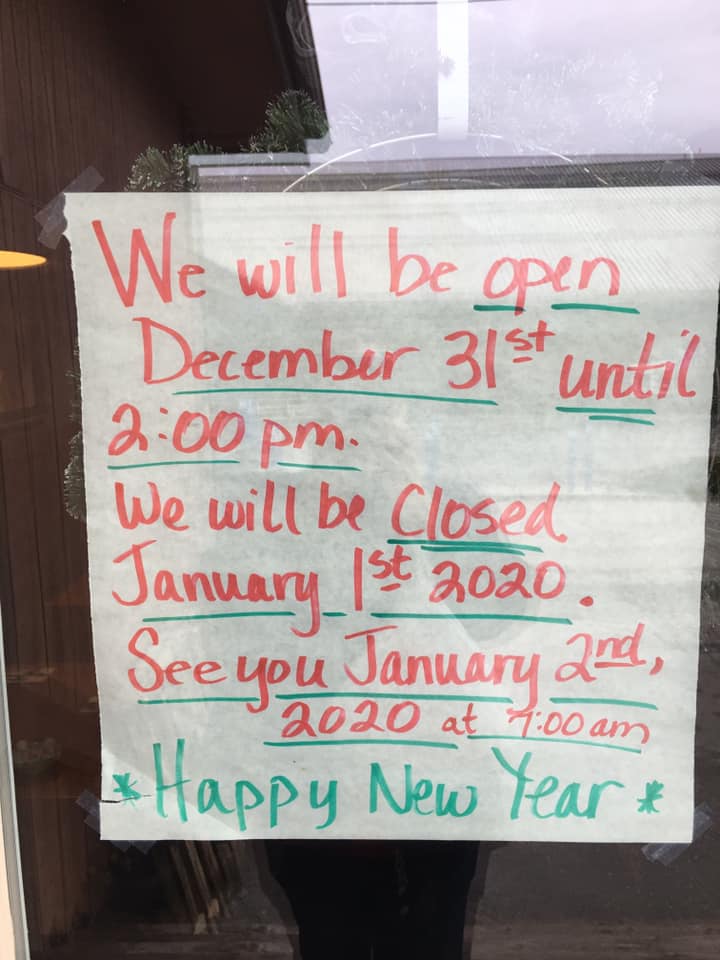 We will be open
December 31st until
2:00 pm.
We will be Closed
January 1st 2020.
See you January 2nd,
2020 at 7:00 am
*Happy New Year*